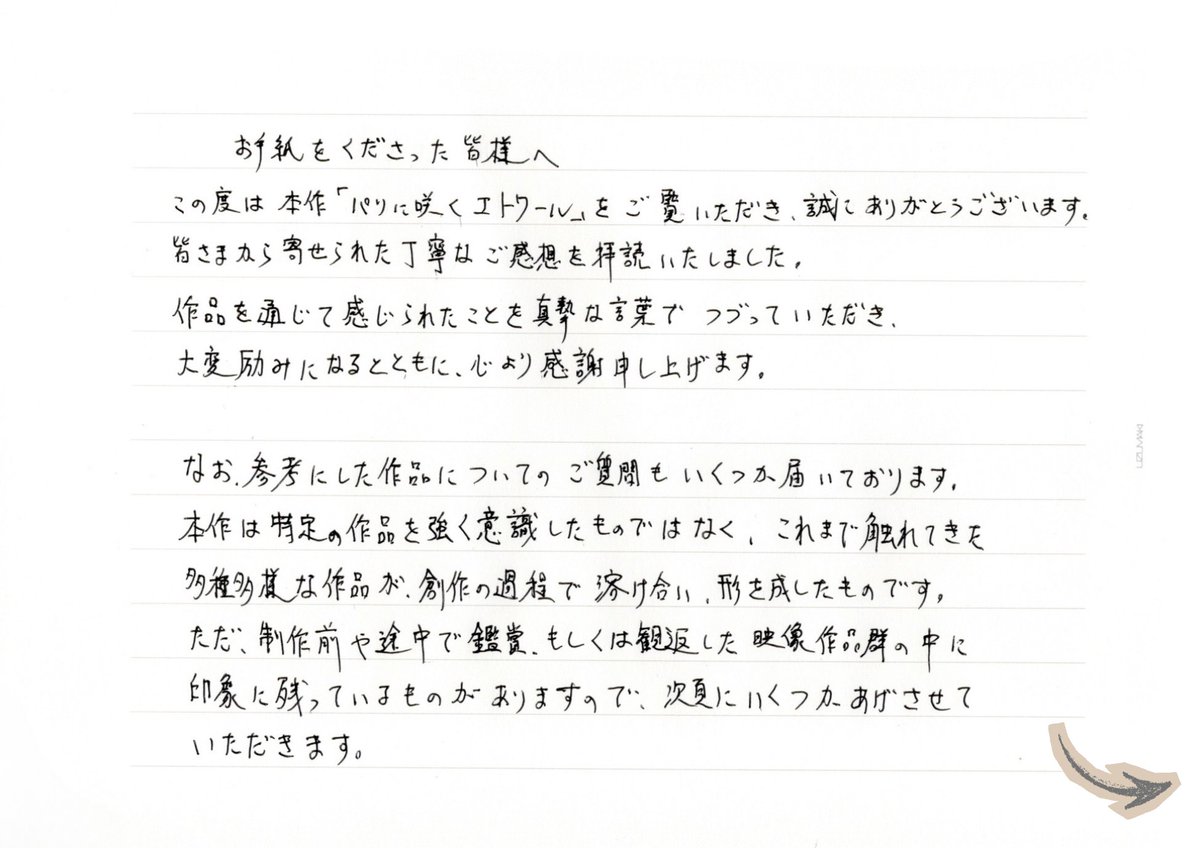 お手紙をくださった皆様へ
この度は本作「パリに咲くエトワール」をご覧いただき、誠にありがとうございます。
皆さまから寄せられた丁寧なご感想を拝読いたしました。
作品を通じて感じられたことを真摯な言葉でつづっていただき、
大変励みになるとともに、心より感謝申し上げます。
なお、参考にした作品についてのご質問もいくつか届いております。
本作は特定の作品を強く意識したものではなく、これまで触れてきた
多種多様な作品が、創作の過程で溶け合い、形を成したものです。
ただ、制作前や途中で鑑賞、もしくは観返した映像作品群の中に
印象に残っているものがありますので、次頁にいくつかあげさせて
いただきます。